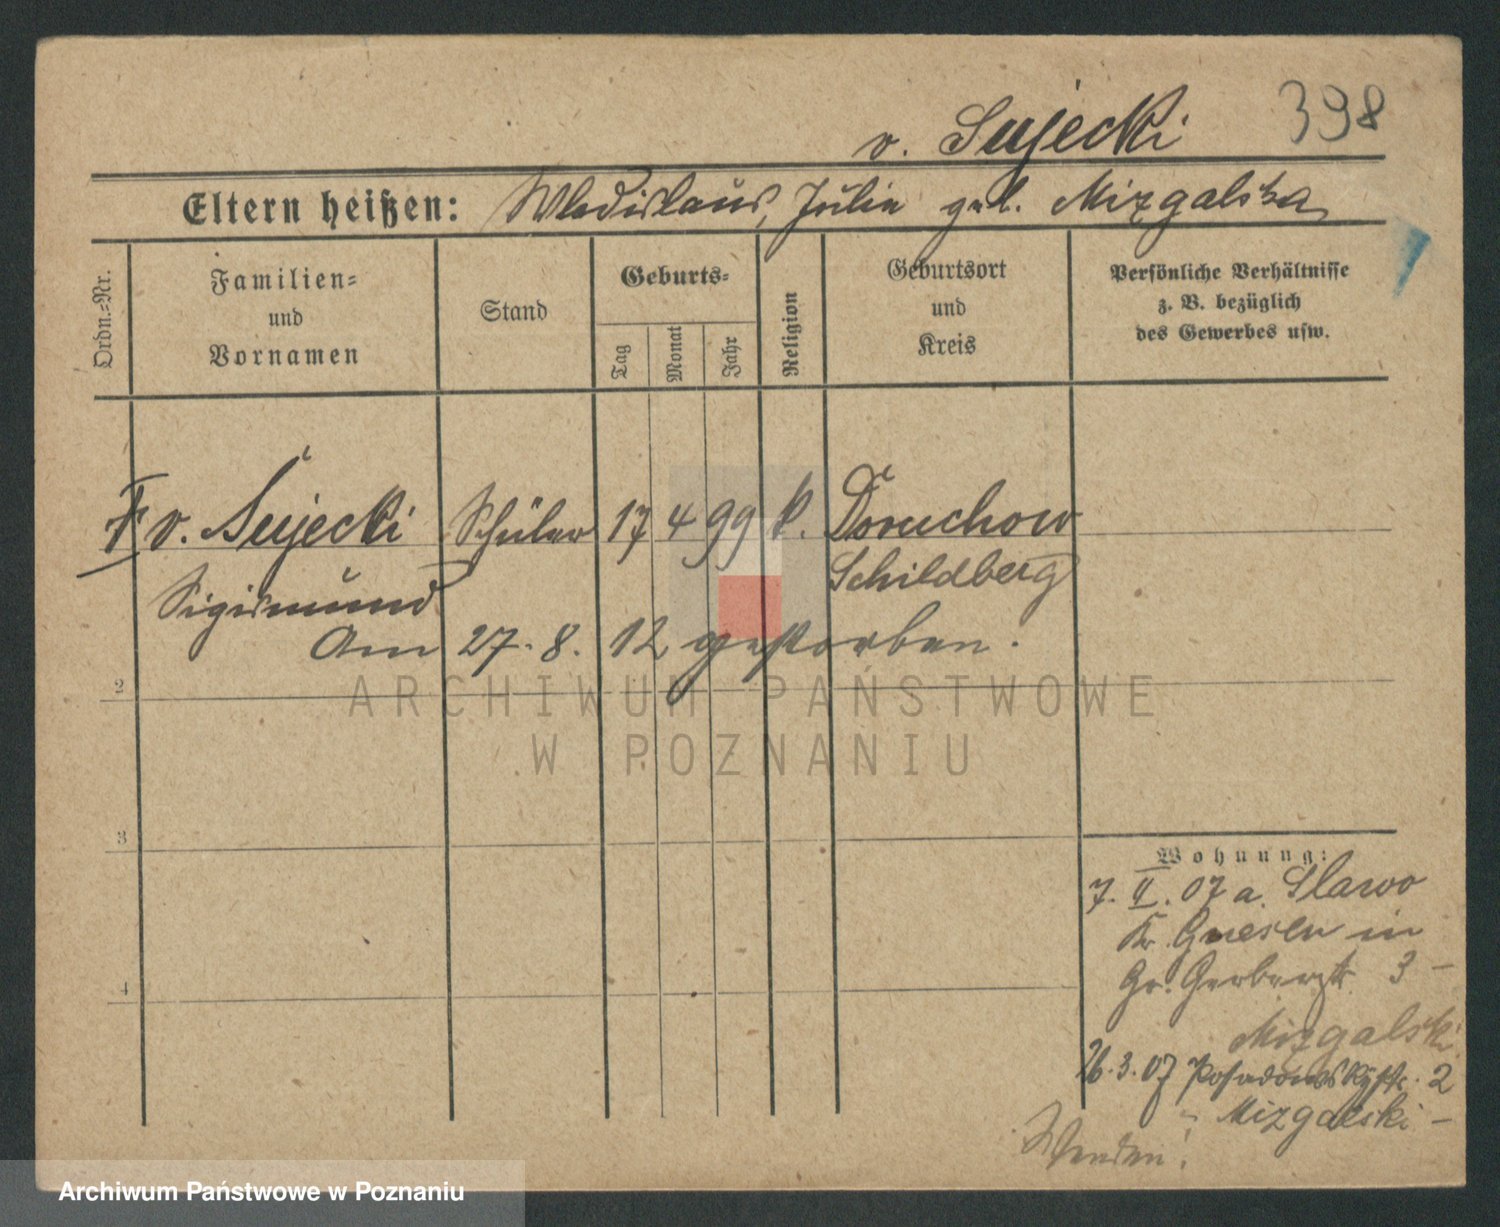 398
v. Sujecki
Eltern heißen: Wladislaus, Julia geb. Mizgalska
Ordn.=Nr.
Familien=
und
Vornamen
Stand
Geburts=
Tag
Monat
Jahr
Religion
Geburtsort
und
Kreis
Persönliche Verhältnisse
z. B. bezüglich
des Gewerbes usw.
v. Sujecki Schüler 17 4 99 k. Doruchow
Sigismund Schildberg
Am 27. 8. 12 gestorben.
2
3
4
Wohnung:
7. II. 07 a. Slawo
Kr. Gnesen in
Gr. Gerberstr. 3 –
Mizgalski
26. 3. 07 Posadowskystr. 2
Mizgalski –
Wenden!
ARCHIWUM PAŃSTWOWE
W POZNANIU
Archiwum Państwowe w Poznaniu